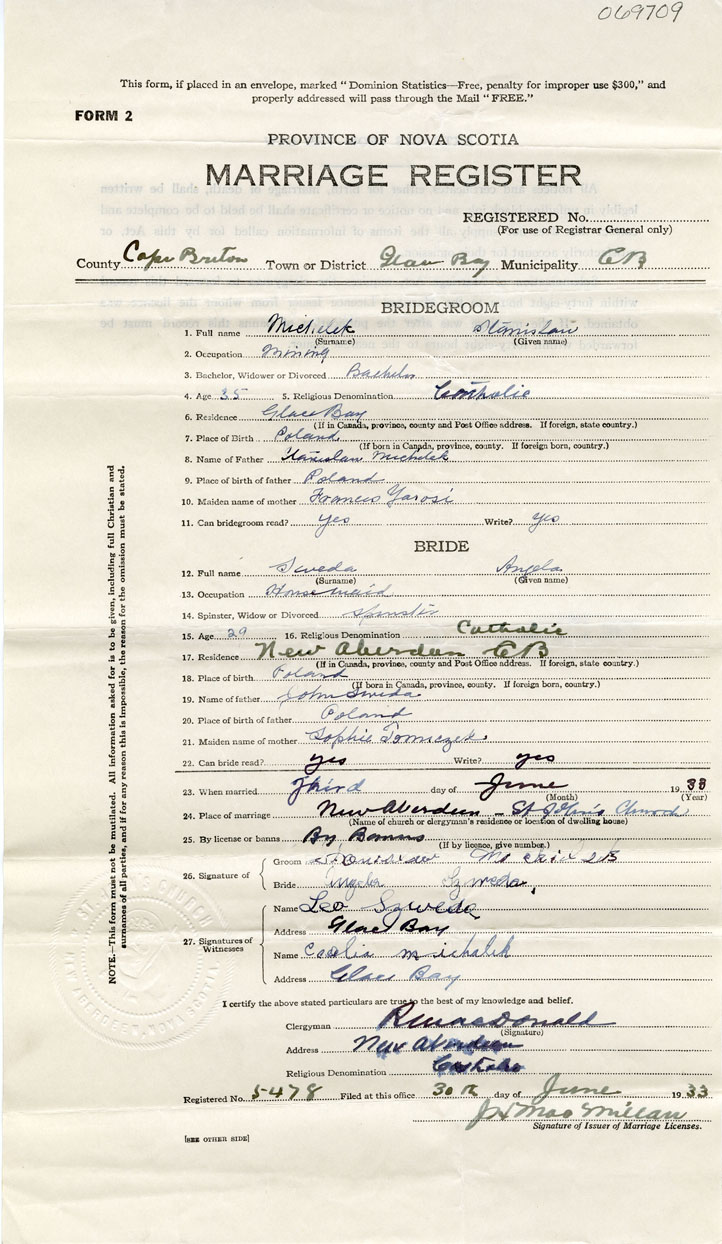 069709
This form, if placed in an envelope, marked "Dominion Statistics—Free, penalty for improper use $300," and
properly addressed will pass through the Mail "FREE."
FORM 2
PROVINCE OF NOVA SCOTIA
MARRIAGE REGISTER
REGISTERED No.
(For use of Registrar General only)
County Cape Breton Town or District Glace Bay Municipality CB
BRIDEGROOM
1. Full name Michelek Stanislaw
(Surname) (Given name)
2. Occupation Mining
3. Bachelor, Widower or Divorced Bachelor
4. Age 35 5. Religious Denomination Catholic
6. Residence Glace Bay
(If in Canada, province, county and Post Office address. If foreign, state country.)
7. Place of Birth Poland
(If born in Canada, province, county. If foreign born, country.)
8. Name of Father Stanislaw Michelek
9. Place of birth of father Poland
10. Maiden name of mother Frances Yarosi
11. Can bridegroom read? yes Write? yes
BRIDE
12. Full name Sweda Angela
(Surname) (Given name)
13. Occupation Housemaid
14. Spinster, Widow or Divorced Spinster
15. Age 29 16. Religious Denomination Catholic
17. Residence New Aberdeen CB
(If in Canada, province, county and Post Office address. If foreign, state country.)
18. Place of birth Poland
(If born in Canada, province, county. If foreign born, country.)
19. Name of father John Sweda
20. Place of birth of father Poland
21. Maiden name of mother Sophie Tomiczek
22. Can bride read? yes Write? yes
23. When married Third day of June 1933
(Month) (Year)
24. Place of marriage New Aberdeen - St John's Church
(Name of church or clergyman's residence or location of dwelling house)
25. By license or banns By Banns
(If by licence, give number.)
26. Signature of
Groom
Bride Angela Szweda
27. Signatures of Witnesses
Name Leo Szweda
Address Glace Bay
Name Cecelia Michalik
Address Glace Bay
I certify the above stated particulars are true to the best of my knowledge and belief.
Clergyman R MacDonald
(Signature)
Address New Aberdeen
Religious Denomination Catholic
Registered No. 5478 Filed at this office 30th day of June 1933
MacMillan
Signature of Issuer of Marriage Licenses.
[SEE OTHER SIDE]
NOTE.—This form must not be mutilated. All information asked for is to be given, including full Christian and
surnames of all parties, and if for any reason this is impossible, the reason for the omission must be stated.